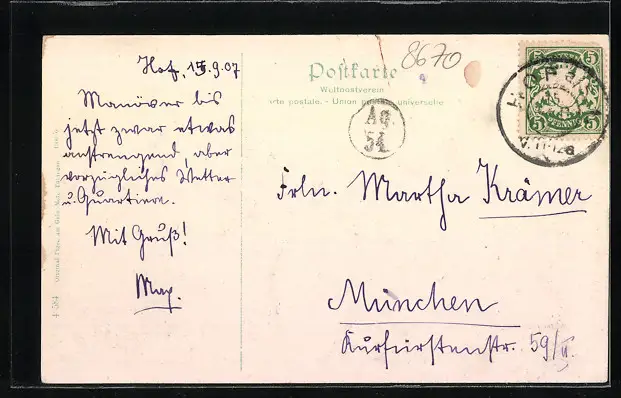 Hof, 15.9.07
Manöver bis
jetzt zwar etwas
anstrengend, aber
vorzügliches Wetter
u. Quartiere.
Mit Gruß!
Max.
8670
Postkarte
Weltpostverein
carte postale. - Union postale universelle
Ag.
54.
5
PFENNIG
5
HOF
V. 11-12
Frln. Martha Krämer
München
Kurfürstenstr. 59/II.